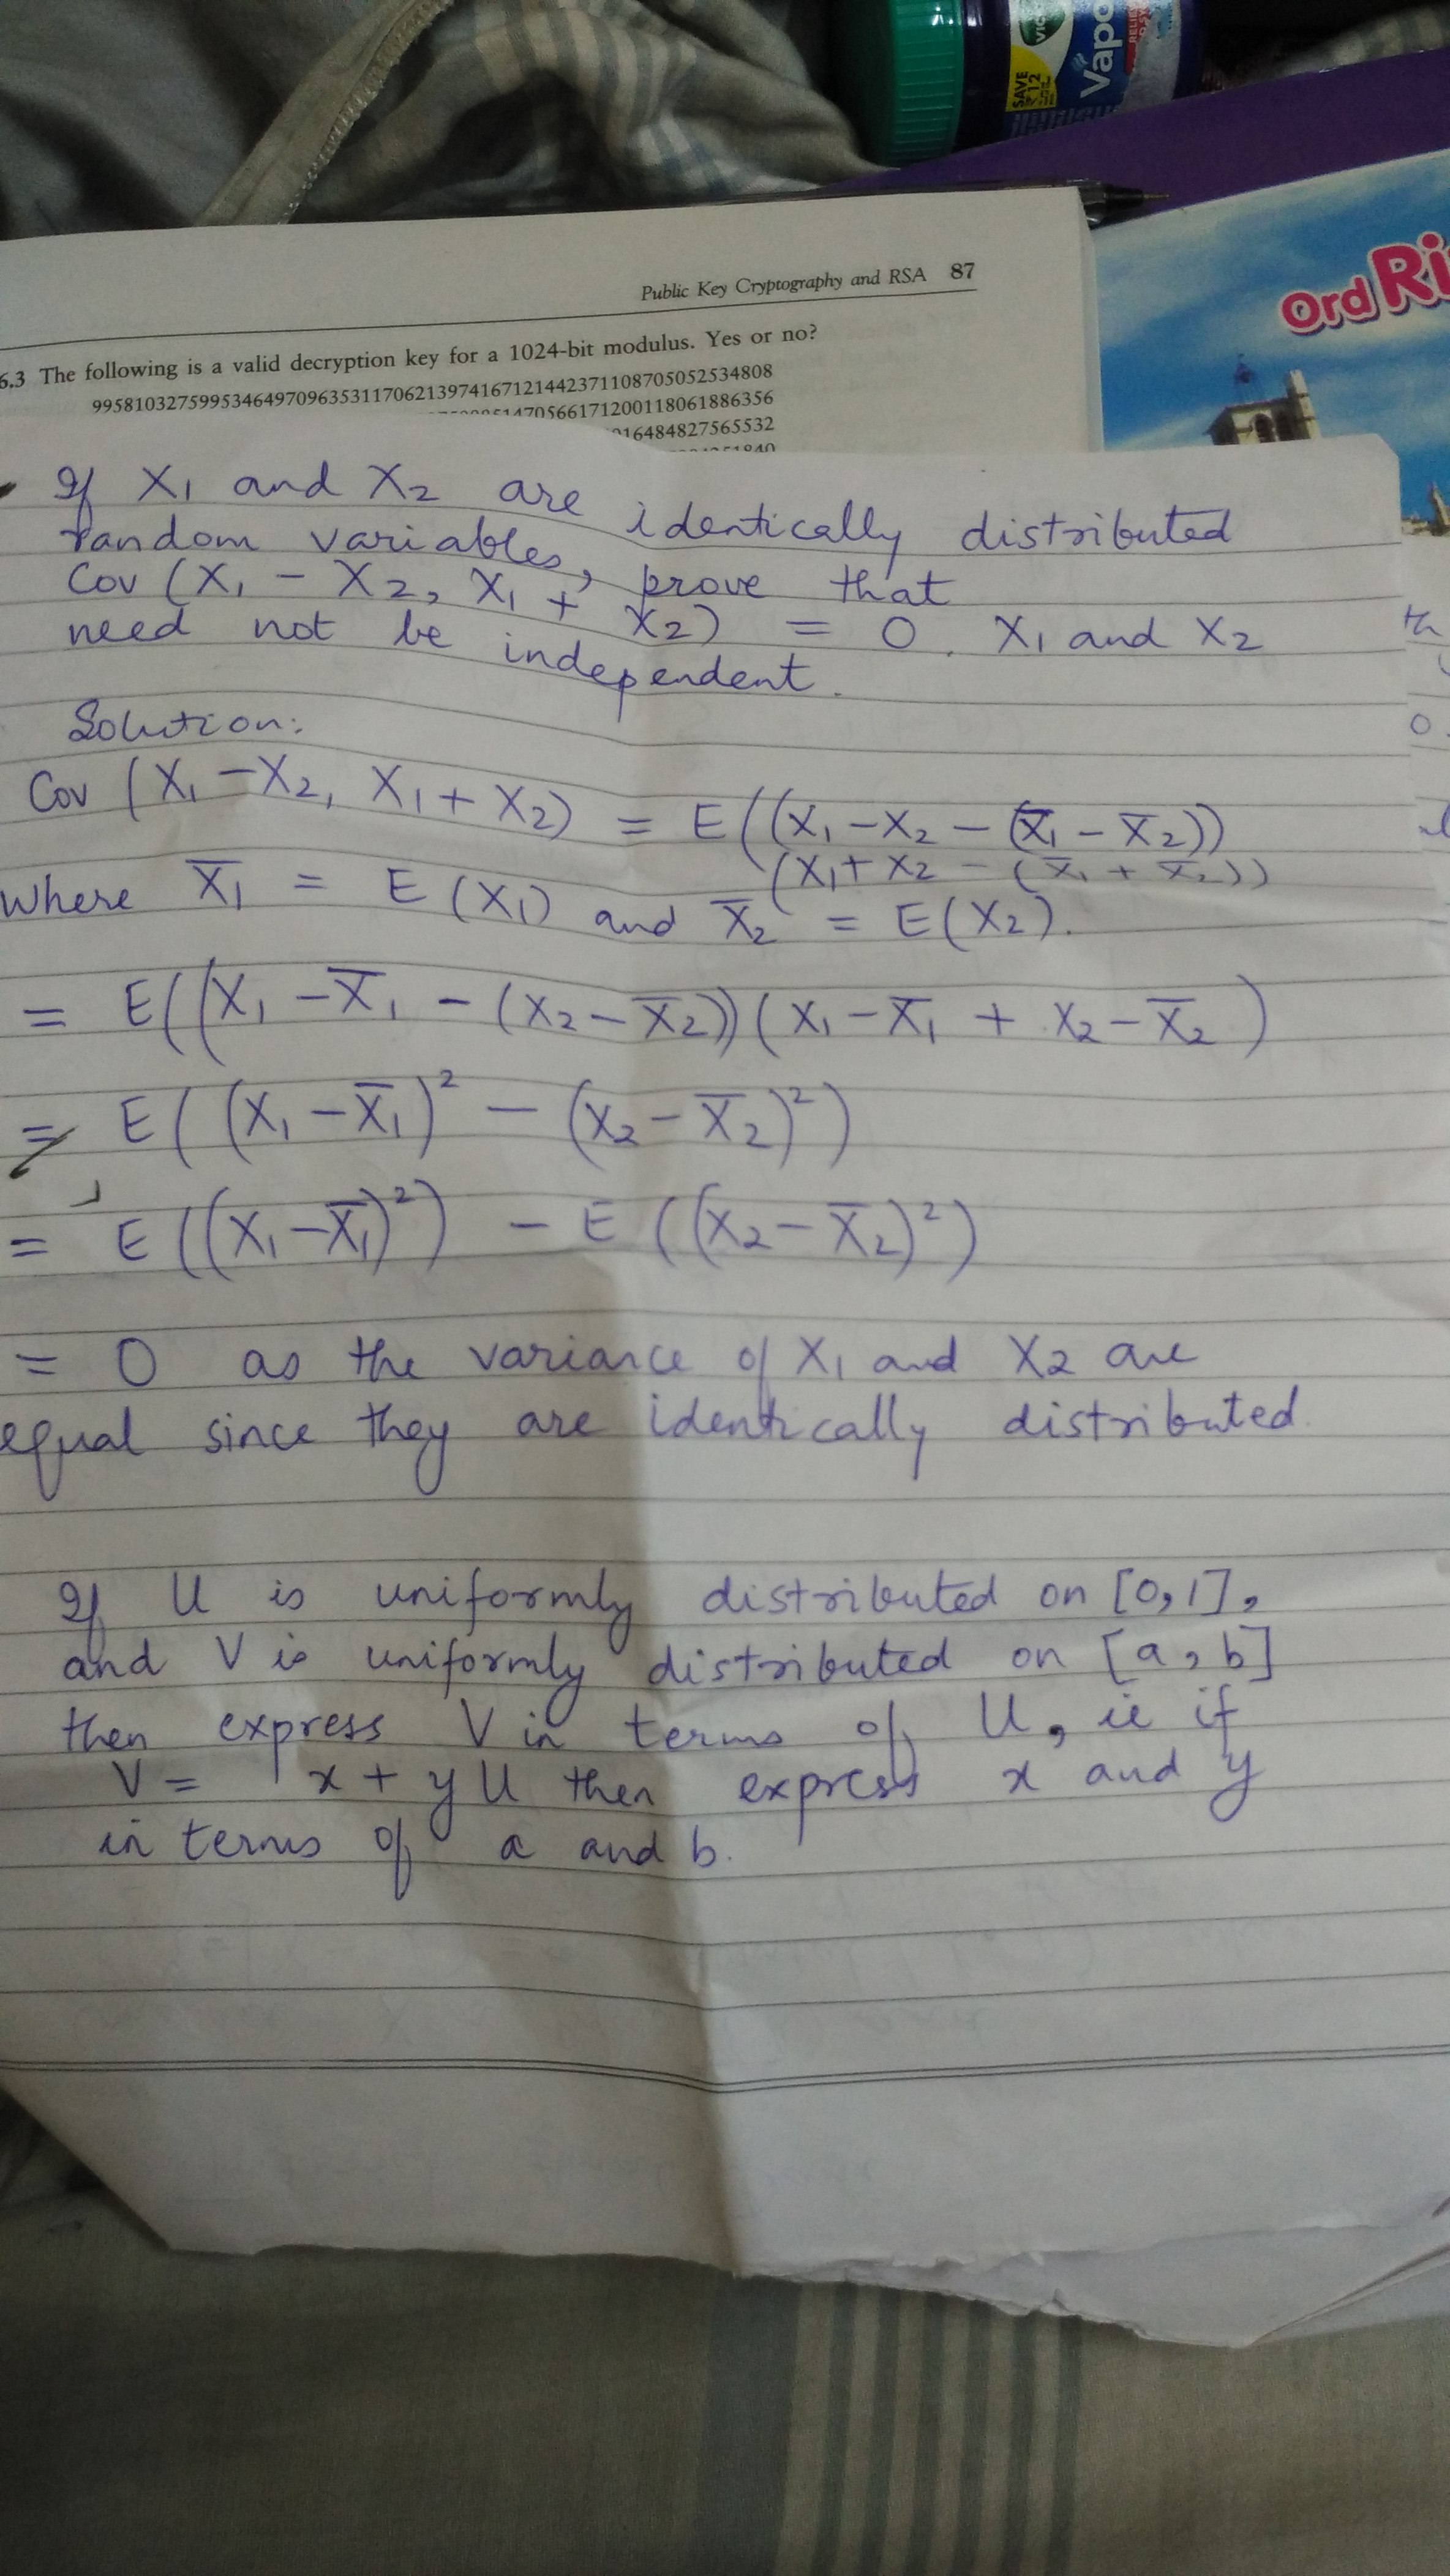 SAVE ₹12
VICKS
Vapo
RELIE
Ord Ri
Public Key Cryptography and RSA 87
6.3 The following is a valid decryption key for a 1024-bit modulus. Yes or no?
If X₁ and X₂ are identically distributed
random variables, prove that
Cov (X₁ - X₂, X₁ + X₂) = 0. X₁ and X₂
need not be independent.
Solution:
Cov (X₁ - X₂, X₁ + X₂) = E((X₁ - X₂ - (X̅₁ - X̅₂))
(X₁ + X₂ - (X̅₁ + X̅₂)))
Where X̅₁ = E(X₁) and X̅₂ = E(X₂).
= E((X₁ - X̅₁ - (X₂ - X̅₂))(X₁ - X̅₁ + X₂ - X̅₂)
= E((X₁ - X̅₁)² - (X₂ - X̅₂)²)
= E((X₁ - X̅₁)²) - E((X₂ - X̅₂)²)
= 0 as the variance of X₁ and X₂ are
equal since they are identically distributed.
If U is uniformly distributed on [0,1],
and V is uniformly distributed on [a, b]
then express V in terms of U, ie if
V = x + y U then express x and y
in terms of a and b.